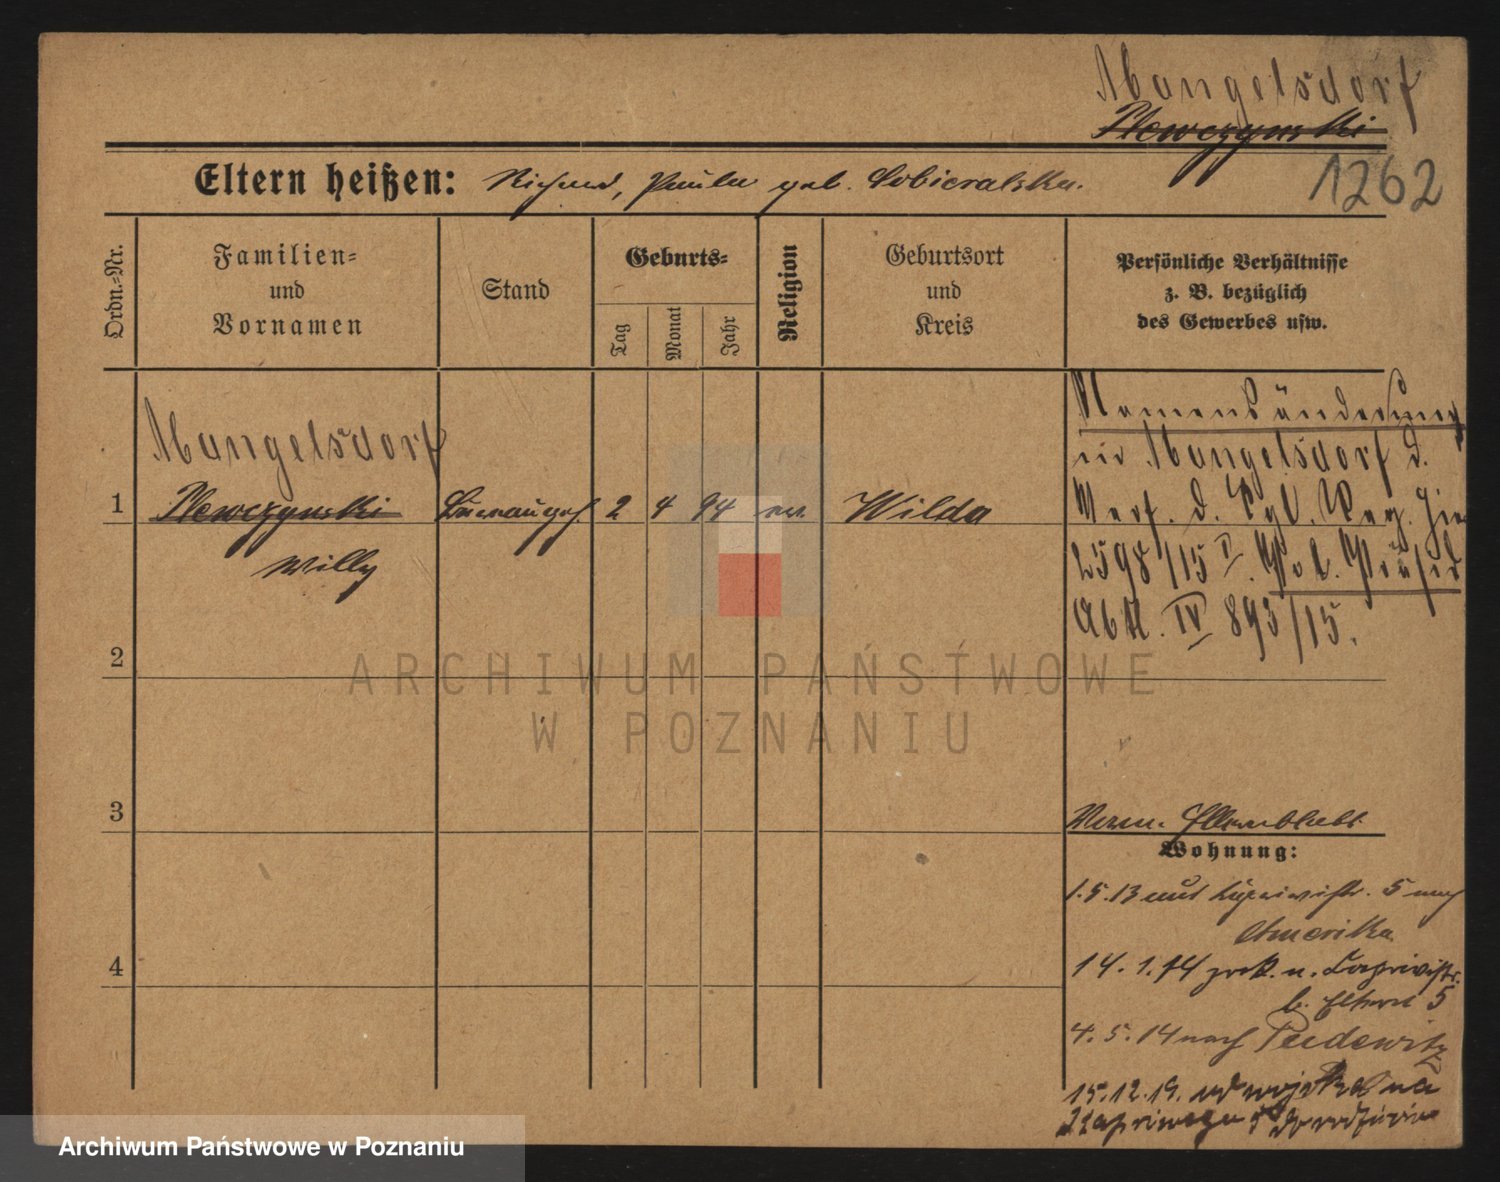 Mangelsdorf
Plewczynski
1262
Eltern heißen: Richard, Paula geb. Sobieralska.
Ordn.-Nr.
Familien-
und
Vornamen
Stand
Geburts-
Tag
Monat
Jahr
Religion
Geburtsort
und
Kreis
Persönliche Verhältnisse
z. B. bezüglich
des Gewerbes usw.
Mangelsdorf
1 Plewczynski Büreaugeh. 2 4 94 ev. Wilda
Willy
Namensänderung
in Mangelsdorf d.
Verf. d. Kgl. Reg. hier
2598/15 I. Pol. Präsid
Abt. IV 893/15.
2
ARCHIWUM PAŃSTWOWE
W POZNANIU
3
Wohnung:
1.5.13 nach
Amerika
4
14.1.14 zurück. n. Caprivistr.
b. Eltern 5
4.5.14 nach Pudewitz
15.12.19. od wojska na
5 do rodziców
Archiwum Państwowe w Poznaniu